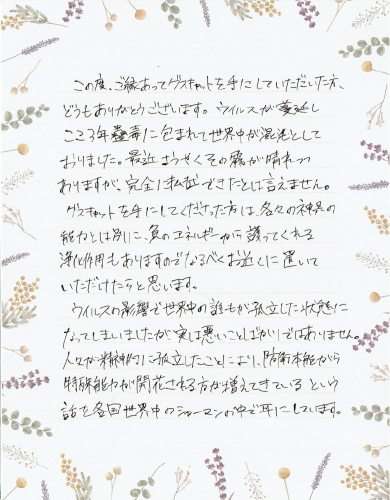 この度、ご縁あってゲスキャットを手にしていただいた方、
どうもありがとうございます。ウイルスが蔓延し
ここ3年蠱毒に包まれて世界中が混沌として
おりました。最近ようやくその霧が晴れつつ
ありますが、完全に払拭できたとは言えません。
ゲスキャットを手にしてくださった方は、各々の神具の
能力とは別に、負のエネルギーから護ってくれる
浄化作用もありますのでなるべくお近くに置いて
いただけたらと思います。
ウイルスの影響で世界中の誰もが孤立した状態に
なってしまいましたが実は悪いことばかりではありません。
人々が精神的に孤立したことにより、防衛本能から
特殊能力が開花される方が増えてきているという
話を各国世界中のシャーマンの中で耳にしています。